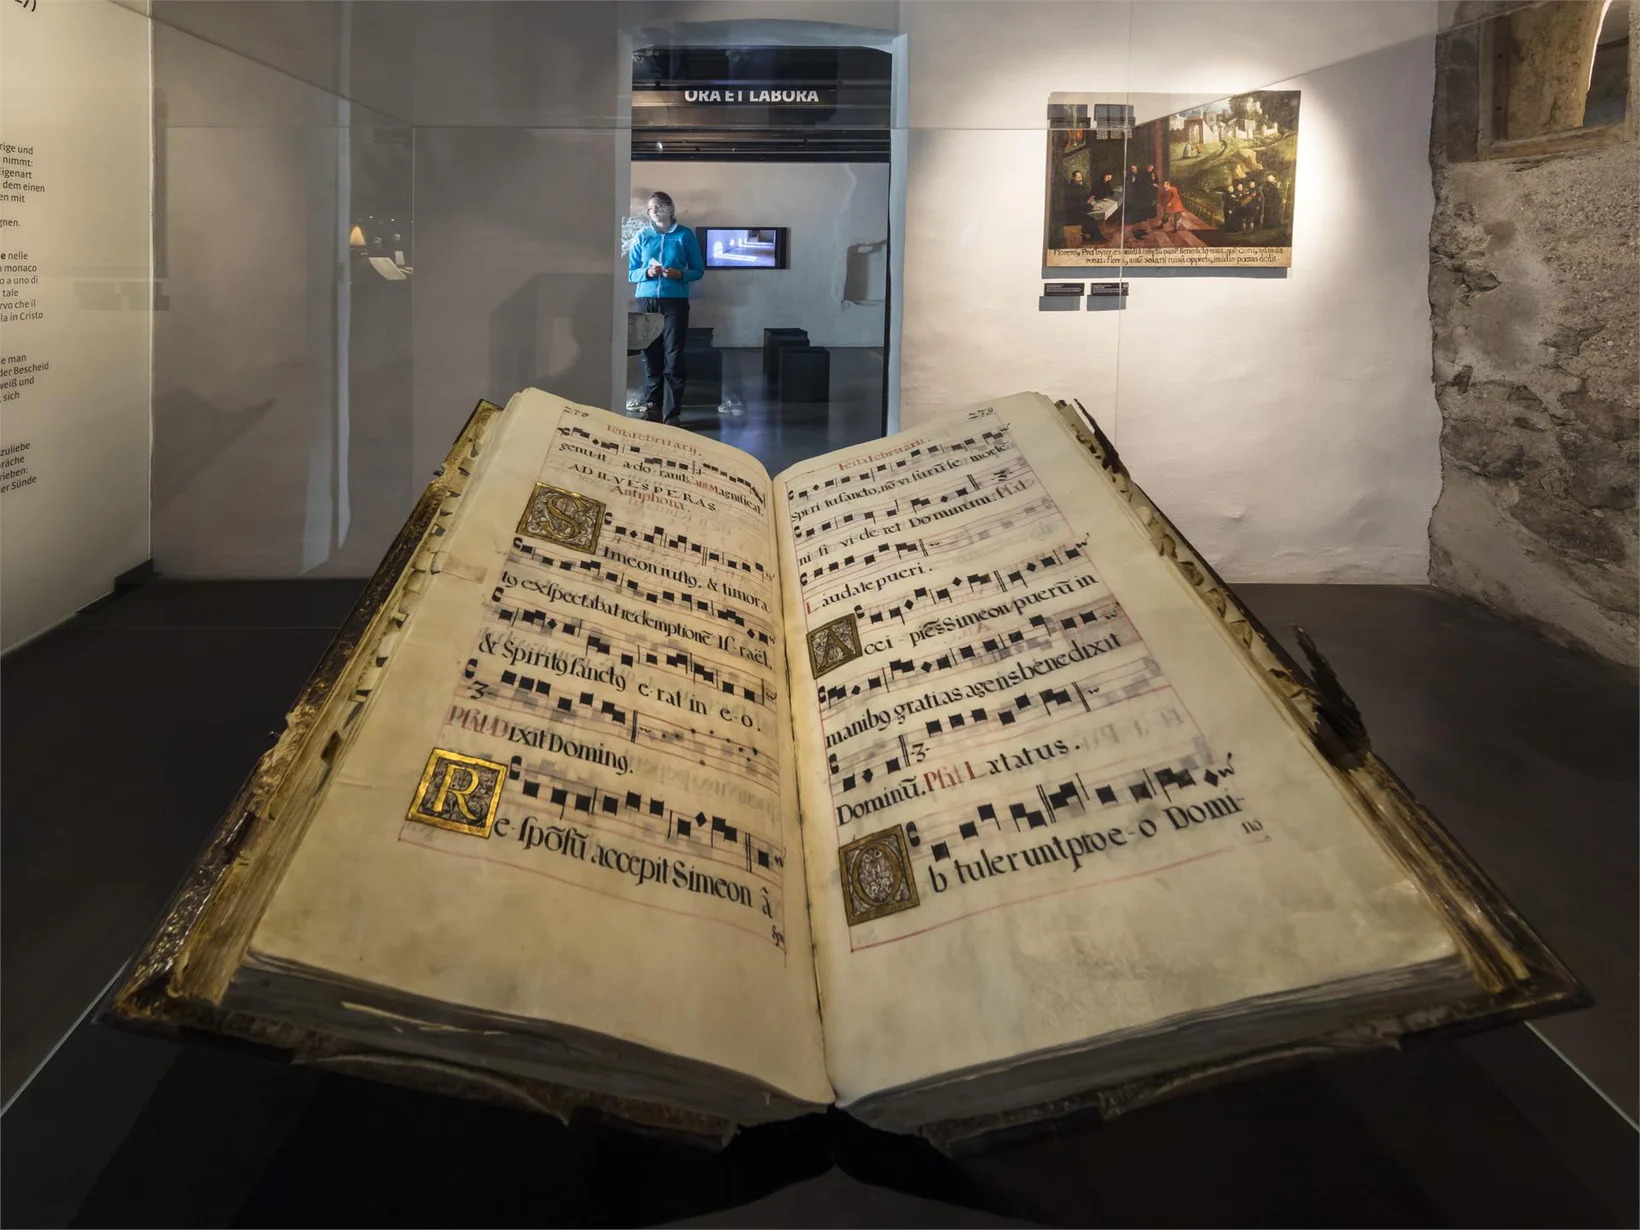 rige und
nimmt:
igenart
dem einen
en mit
gnen.
e nelle
monaco
o a uno di
tale
rvo che il
la in Cristo
e man
der Bescheid
weiß und
, sich
zuliebe
räche
rieben:
er Sünde
ORA ET LABORA
278
genuit adorauit. Magnificat
AD II. VESPERAS
Antiphona.
Simeon iustꝰ. & timora
tꝰ exspectabat redemptionē Israël,
& Spiritꝰ sanctꝰ erat in eo.
Ps. Dixit Dominꝰ.
Re-spōsū accepit Simeon à
Spi
279
Spiritu sancto, nō visurū se mortē
ni si videret Dominum. Ps.
Laudate pueri.
Accipiēs Simeon puerū in
manibꝰ gratias agens benedixit
Dominū. Ps. Lætatus.
Obtulerunt pro eo Domi-
no